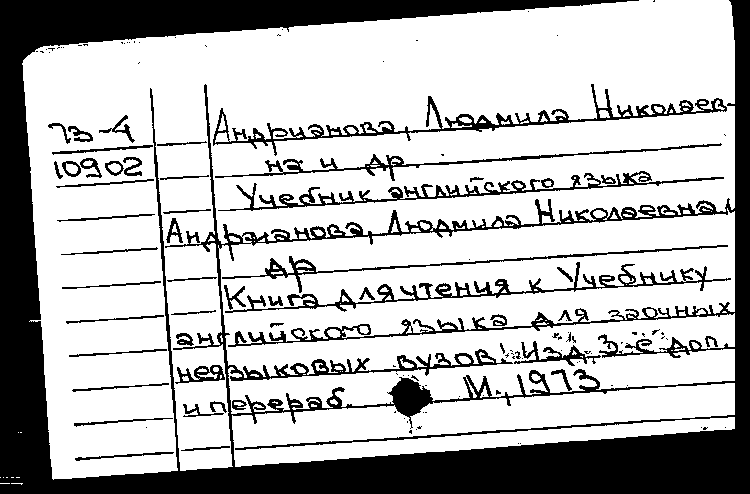 73-4
10902
Андрианова, Людмила Николаев-
на и др.
Учебник английского языка.
Андрианова, Людмила Николаевна и
др
Книга для чтения к Учебнику
английского языка для заочных
неязыковых вузов. Изд. 3-е доп.
и перераб. М., 1973.